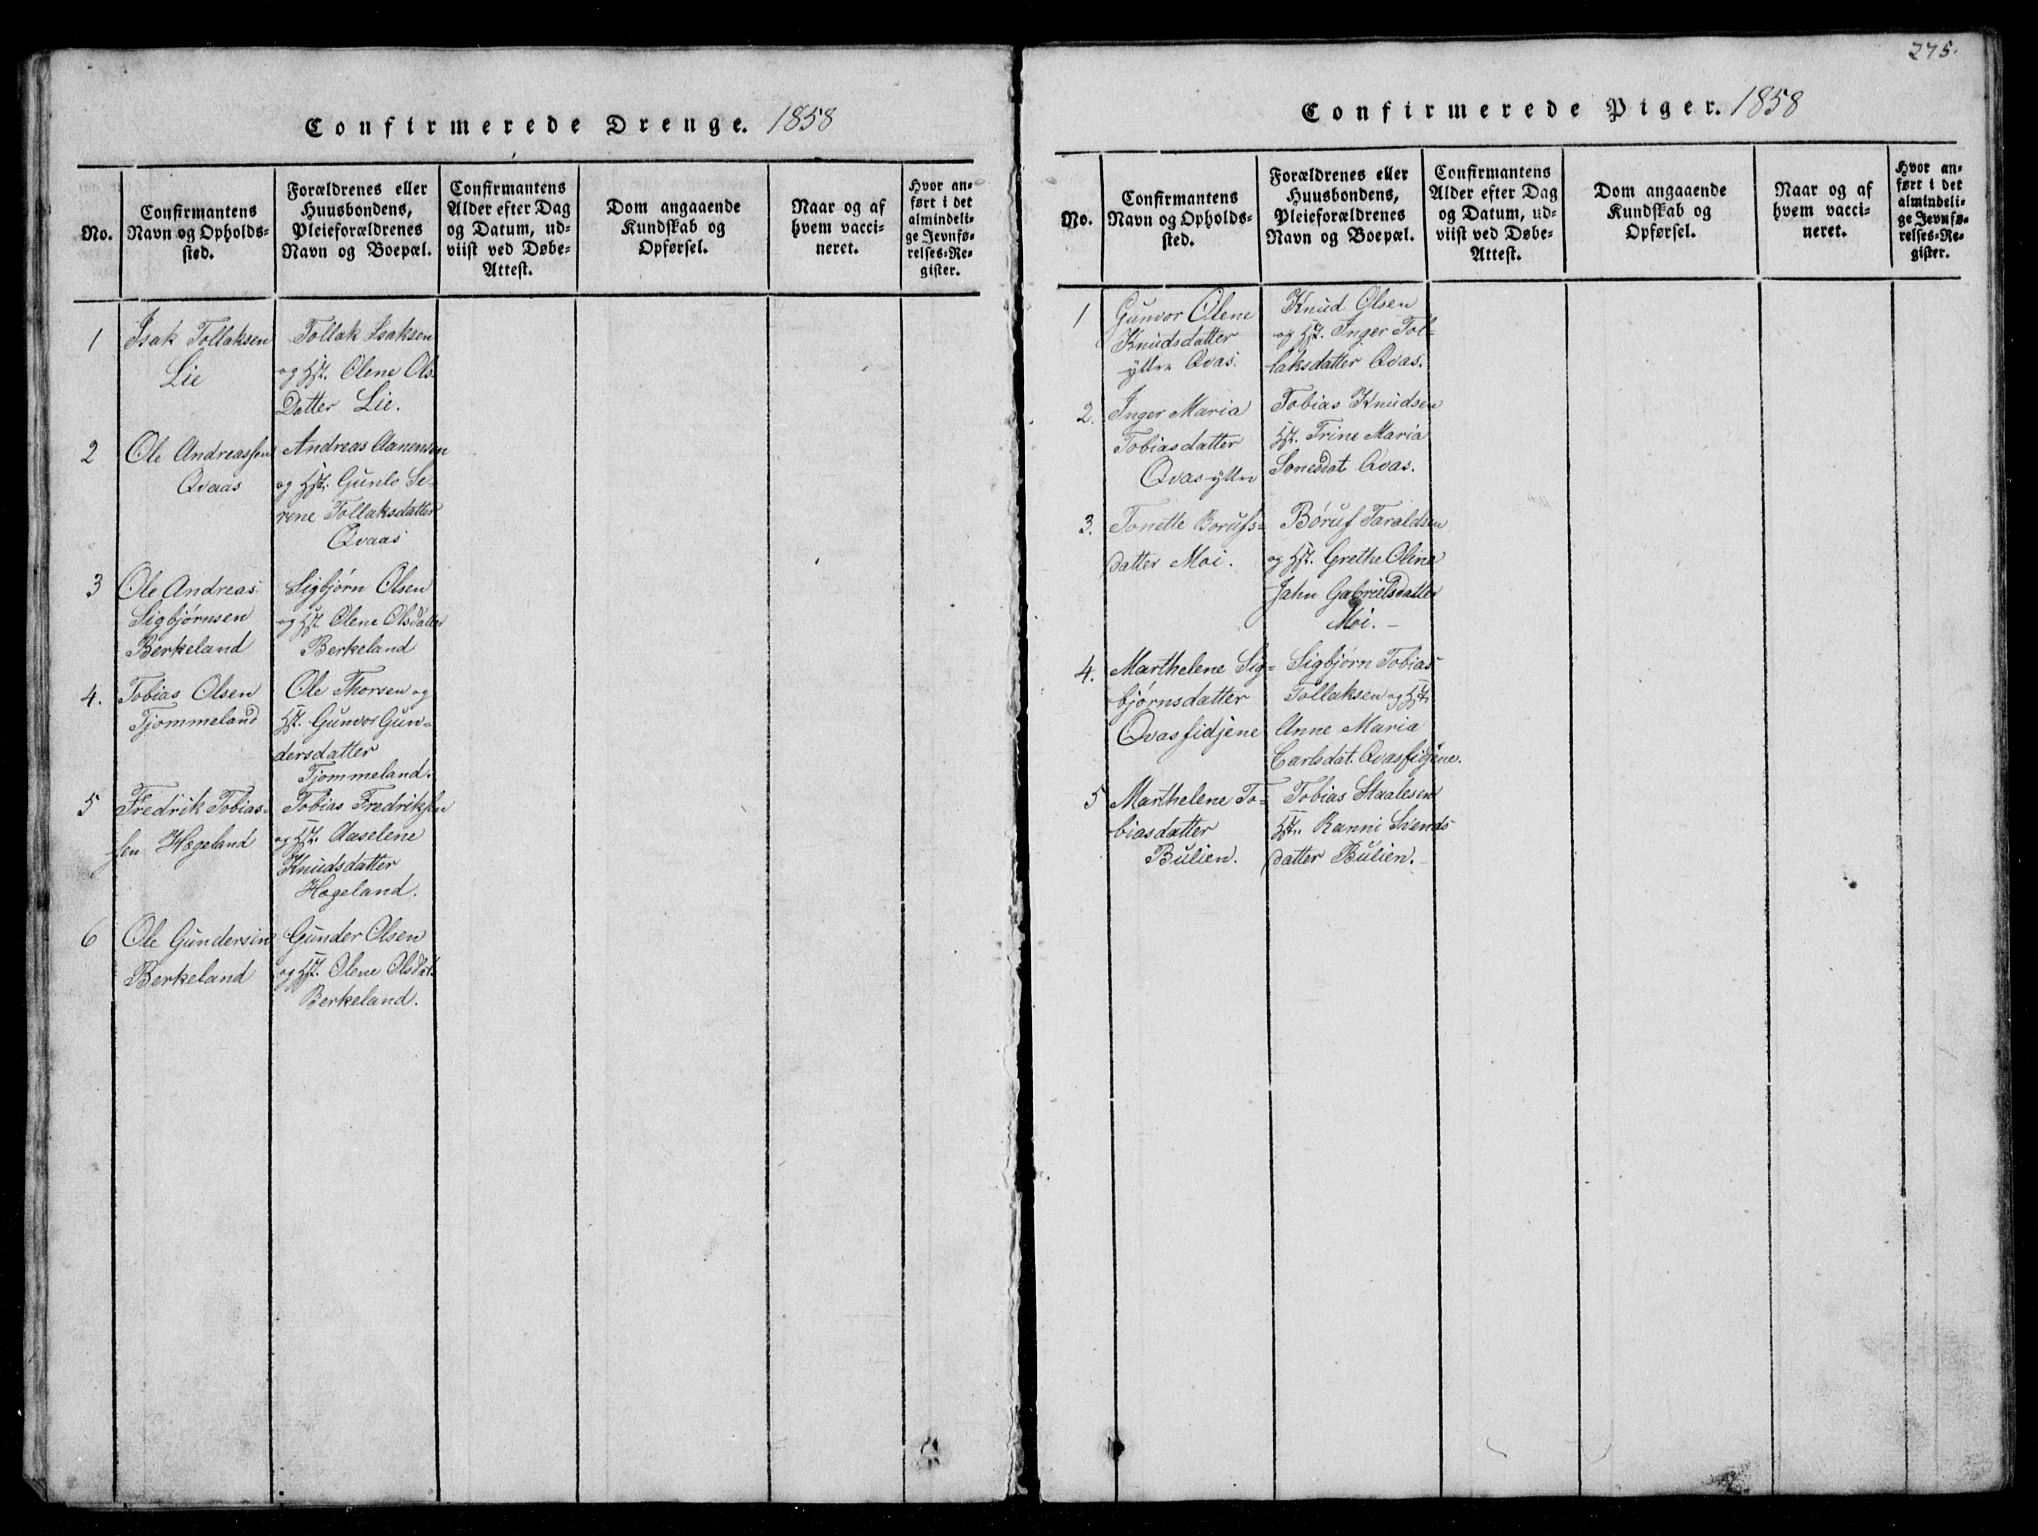 Confirmerede Drenge. 1858
No.
Confirmantens
Navn og Opholds-
sted.
Forældrenes eller
Huusbondens,
Pleieforældrenes
Navn og Boepæl.
Confirmantens
Alder efter Dag
og Datum, ud-
viist ved Døbe-
Attest.
Dom angaaende
Kundskab og
Opførsel.
Naar og af
hvem vacci-
neret.
Hvor an-
ført i det
almindeli-
ge Jevnfø-
relses-Re-
gister.
1
Isak Tollaksen
Lie
Tollak Isaksen
og Hst. Olene Ols
Datter Lie.
2
Ole Andreassen
Qvaas
Andreas Aanensen
og Hst. Gunlo Se-
rene Tollaksdatter
Qvaas
3
Ole Andreas
Sigbjørnsen
Berkeland
Sigbjørn Olsen
og Hst. Olene Olsdatter
Berkeland
4.
Tobias Olsen
Tjommeland
Ole Thorsen og
Hst. Gunvor Gun-
dersdatter
Tjommeland.
5
Fredrik Tobias-
sen Hægeland
Tobias Fredriksen
og Hst. Aaselene
Knudsdatter
Hægeland.
6
Ole Gundersen
Berkeland
Gunder Olsen
og Hst. Olene Olsdat.
Berkeland.
275.
Confirmerede Piger. 1858
No.
Confirmantens
Navn og Opholds-
sted.
Forældrenes eller
Huusbondens,
Pleieforældrenes
Navn og Boepæl.
Confirmantens
Alder efter Dag
og Datum, ud-
viist ved Døbe-
Attest.
Dom angaaende
Kundskab og
Opførsel.
Naar og af
hvem vacci-
neret.
Hvor an-
ført i det
almindeli-
ge Jevnfø-
relses-Re-
gister.
1
Gunvor Olene
Knudsdatter
yttre Qvas.
Knud Olsen
og Hst. Inger Tol-
laksdatter Qvas.
2.
Inger Maria
Tobiasdatter
Qvas yttre
Tobias Knudsen
Hst. Trine Maria
Sonesdat Qvas.
3.
Tonette Borufs-
datter Moi.
Børuf Taraldsen
og Hst. Grethe Oline
Jahn Gabrielsdatter
Moi. -
4.
Marthelene Sig-
bjørnsdatter
Qvasfidjene
Sigbjørn Tobias
Tollaksen og Hst.
Anne Maria
Carlsdat. Qvasfidjene.
5
Marthelene To-
biasdatter
Bulien.
Tobias Staalesen
Hst. Ranni Svends
datter Bulien. -